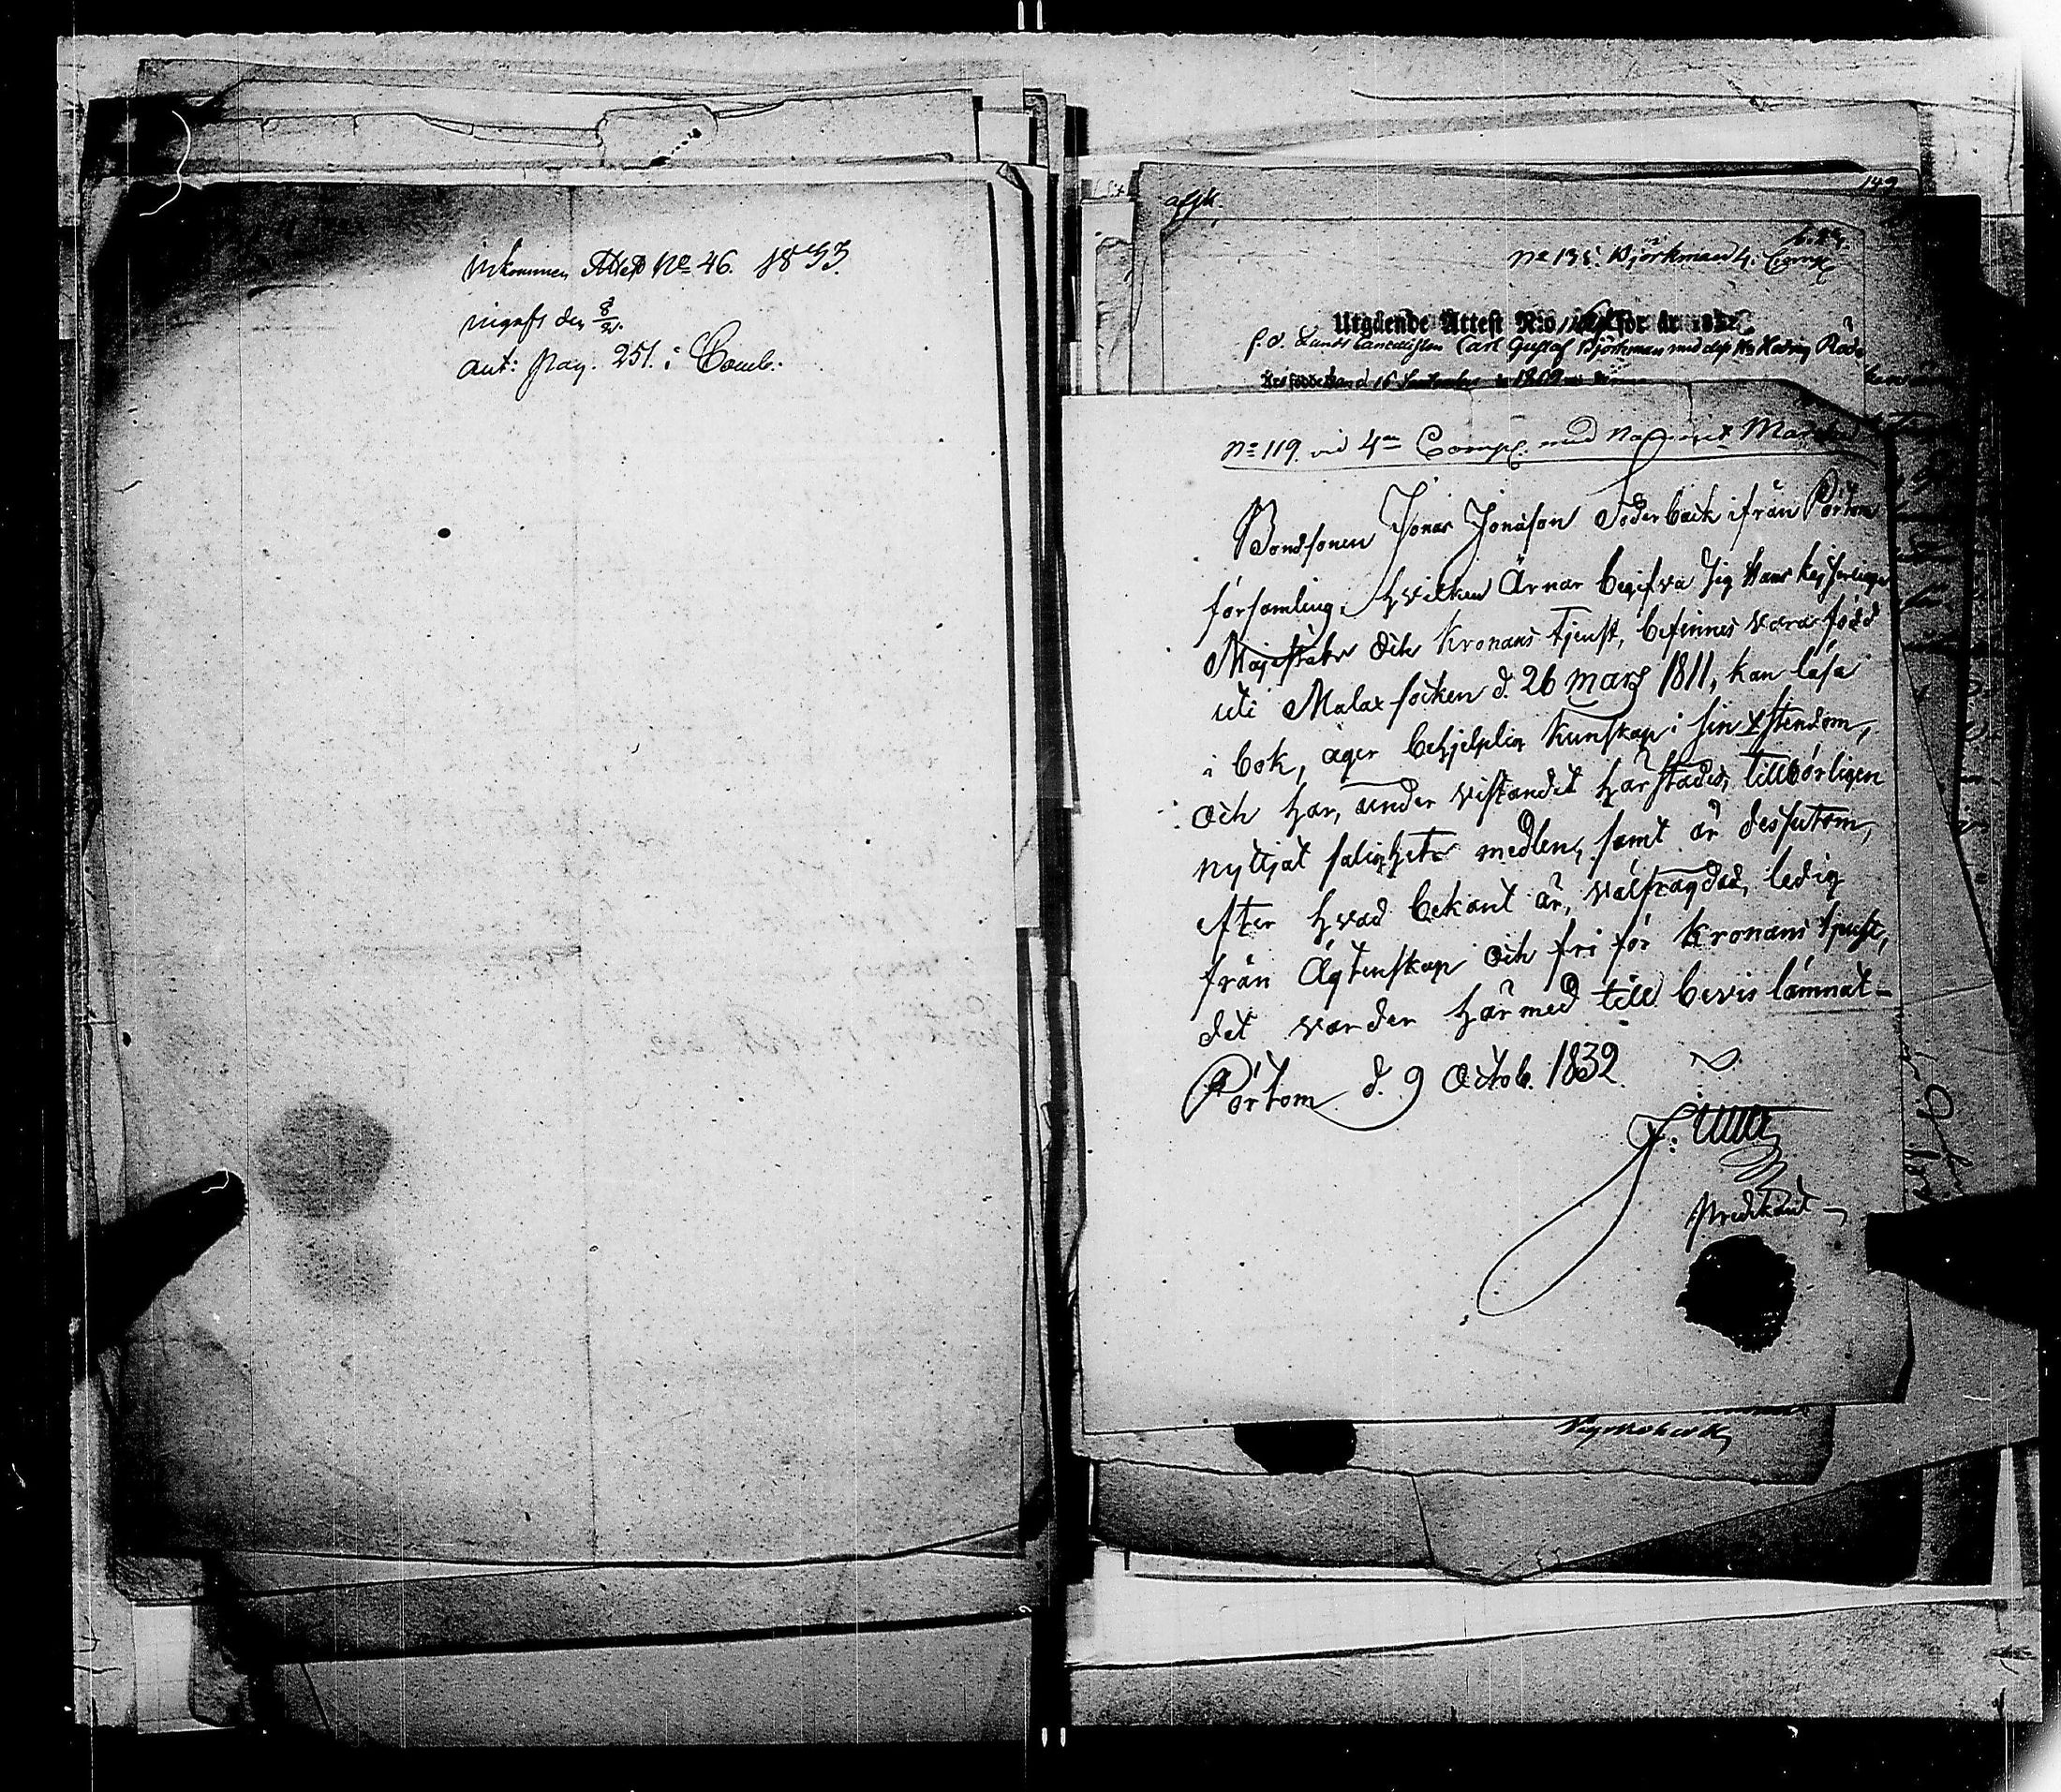 inkommen Attest No 46. 1833.
ingift den 8/2.
ant: pag. 251. i Comb.
149
afsk.
No 135. Björkman 4. Comp
Utgående Attest N:o för år 18
f. d. Lands Cancellisten Carl Gustaf Björkman med dess
1802
No 119. vid 4de Comp. med Namnet
Bondsonen Jonas Jonasson Söderback ifrån Pörtom
församling, hvilken Ärnar begifva sig Hans Kejserliga
Majestäts Och Kronans tjenst, befinnes vara född
uti Malax socken d. 26 mars 1811, kan läsa
i bok, äger behjelplig Kunskap i sin Xstendom,
Och har, under vistandet härstädes, tillbörligen
nyttjat salighets medlen, samt är dessutom,
efter hvad bekant är, välfrägdad, ledig
från Ägtenskap Och fri för Kronans tjenst,
det varder härmed till bevis lämnat –
Pörtom d. 9 Octob. 1832.
Predikant